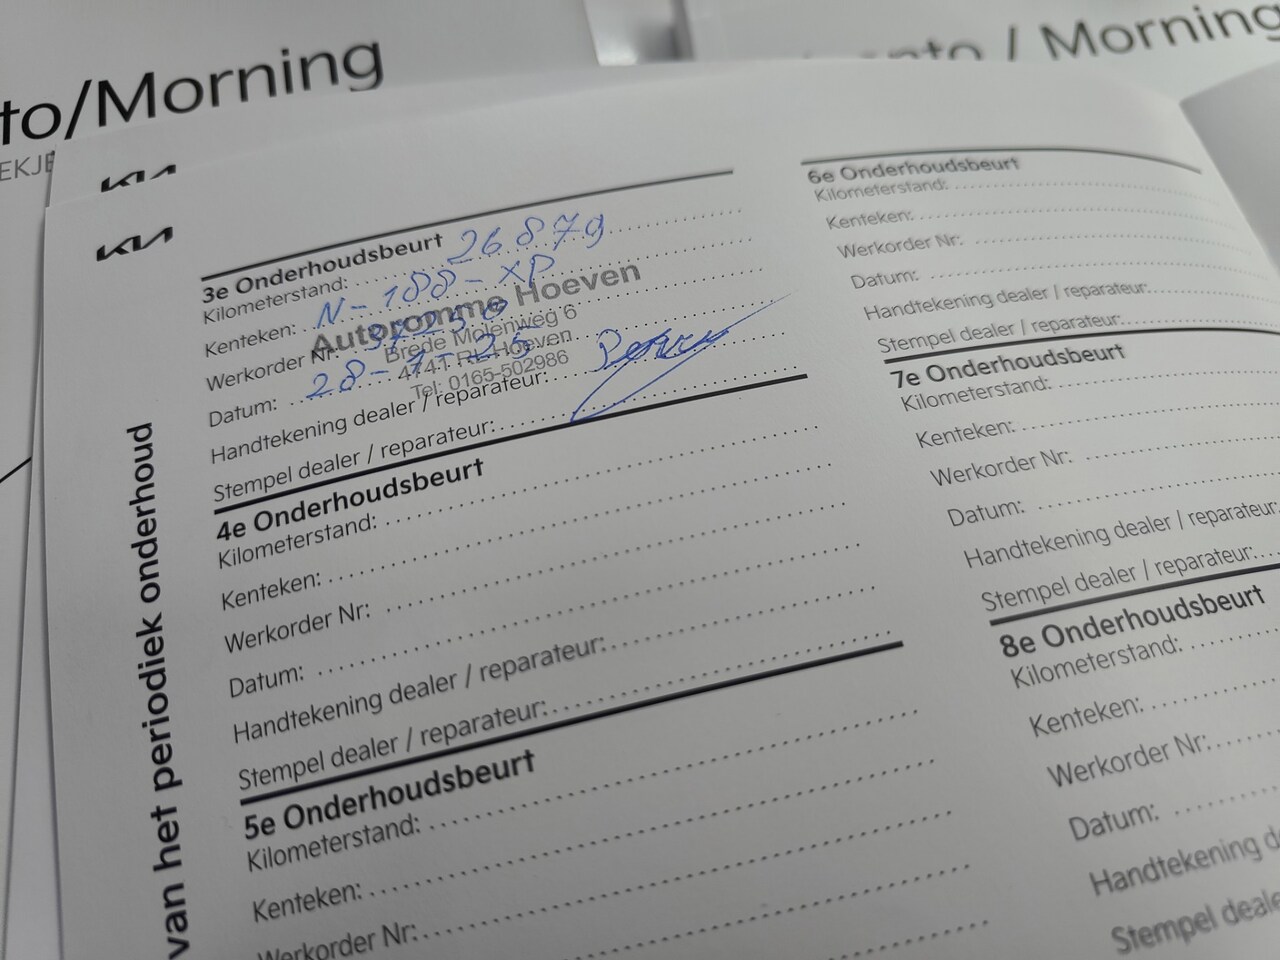 to/Morning
EKJE
nto / Morning
KIA
KIA
van het periodiek onderhoud
3e Onderhoudsbeurt
Kilometerstand: 26879
Kenteken: N-188-XP
Autoromme Hoeven
Werkorder Nr:
Brede Molenweg 6
Datum: 28-1-25
4741 RL Hoeven
Tel: 0165-502986
Handtekening dealer / reparateur:
Stempel dealer / reparateur:
4e Onderhoudsbeurt
Kilometerstand:
Kenteken:
Werkorder Nr:
Datum:
Handtekening dealer / reparateur:
Stempel dealer / reparateur:
5e Onderhoudsbeurt
Kilometerstand:
Kenteken:
Werkorder Nr:
6e Onderhoudsbeurt
Kilometerstand:
Kenteken:
Werkorder Nr:
Datum:
Handtekening dealer / reparateur:
Stempel dealer / reparateur:
7e Onderhoudsbeurt
Kilometerstand:
Kenteken:
Werkorder Nr:
Datum:
Handtekening dealer / reparateur:
Stempel dealer / reparateur:
8e Onderhoudsbeurt
Kilometerstand:
Kenteken:
Werkorder Nr:
Datum:
Handtekening d
Stempel deale